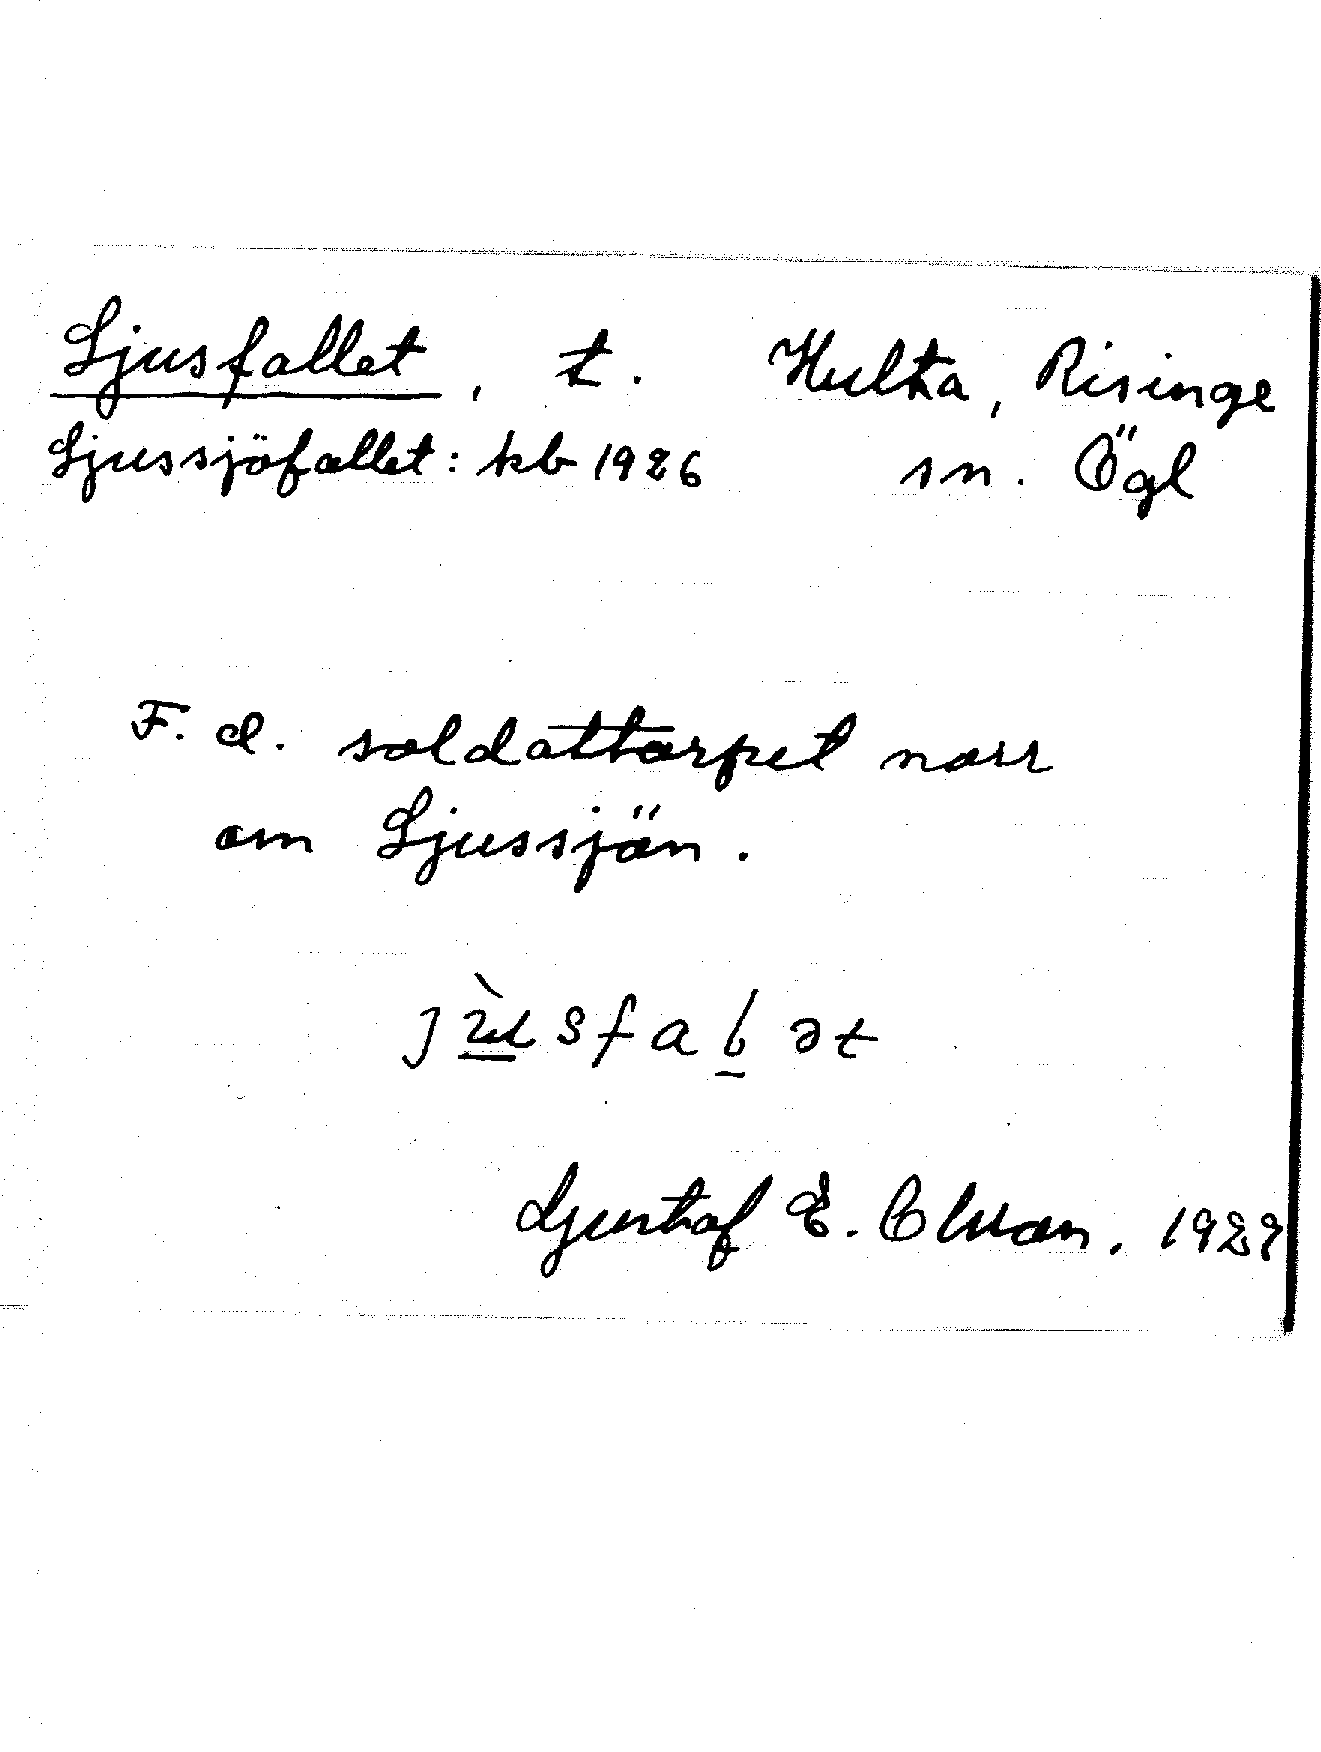 Ljusfallet, t. Hulta, Risinge
Ljussjöfallet: kb 1926 sn. Ögl
F. d. soldattorpet norr
om Ljussjön.
Gustaf E. Olsson. 1929